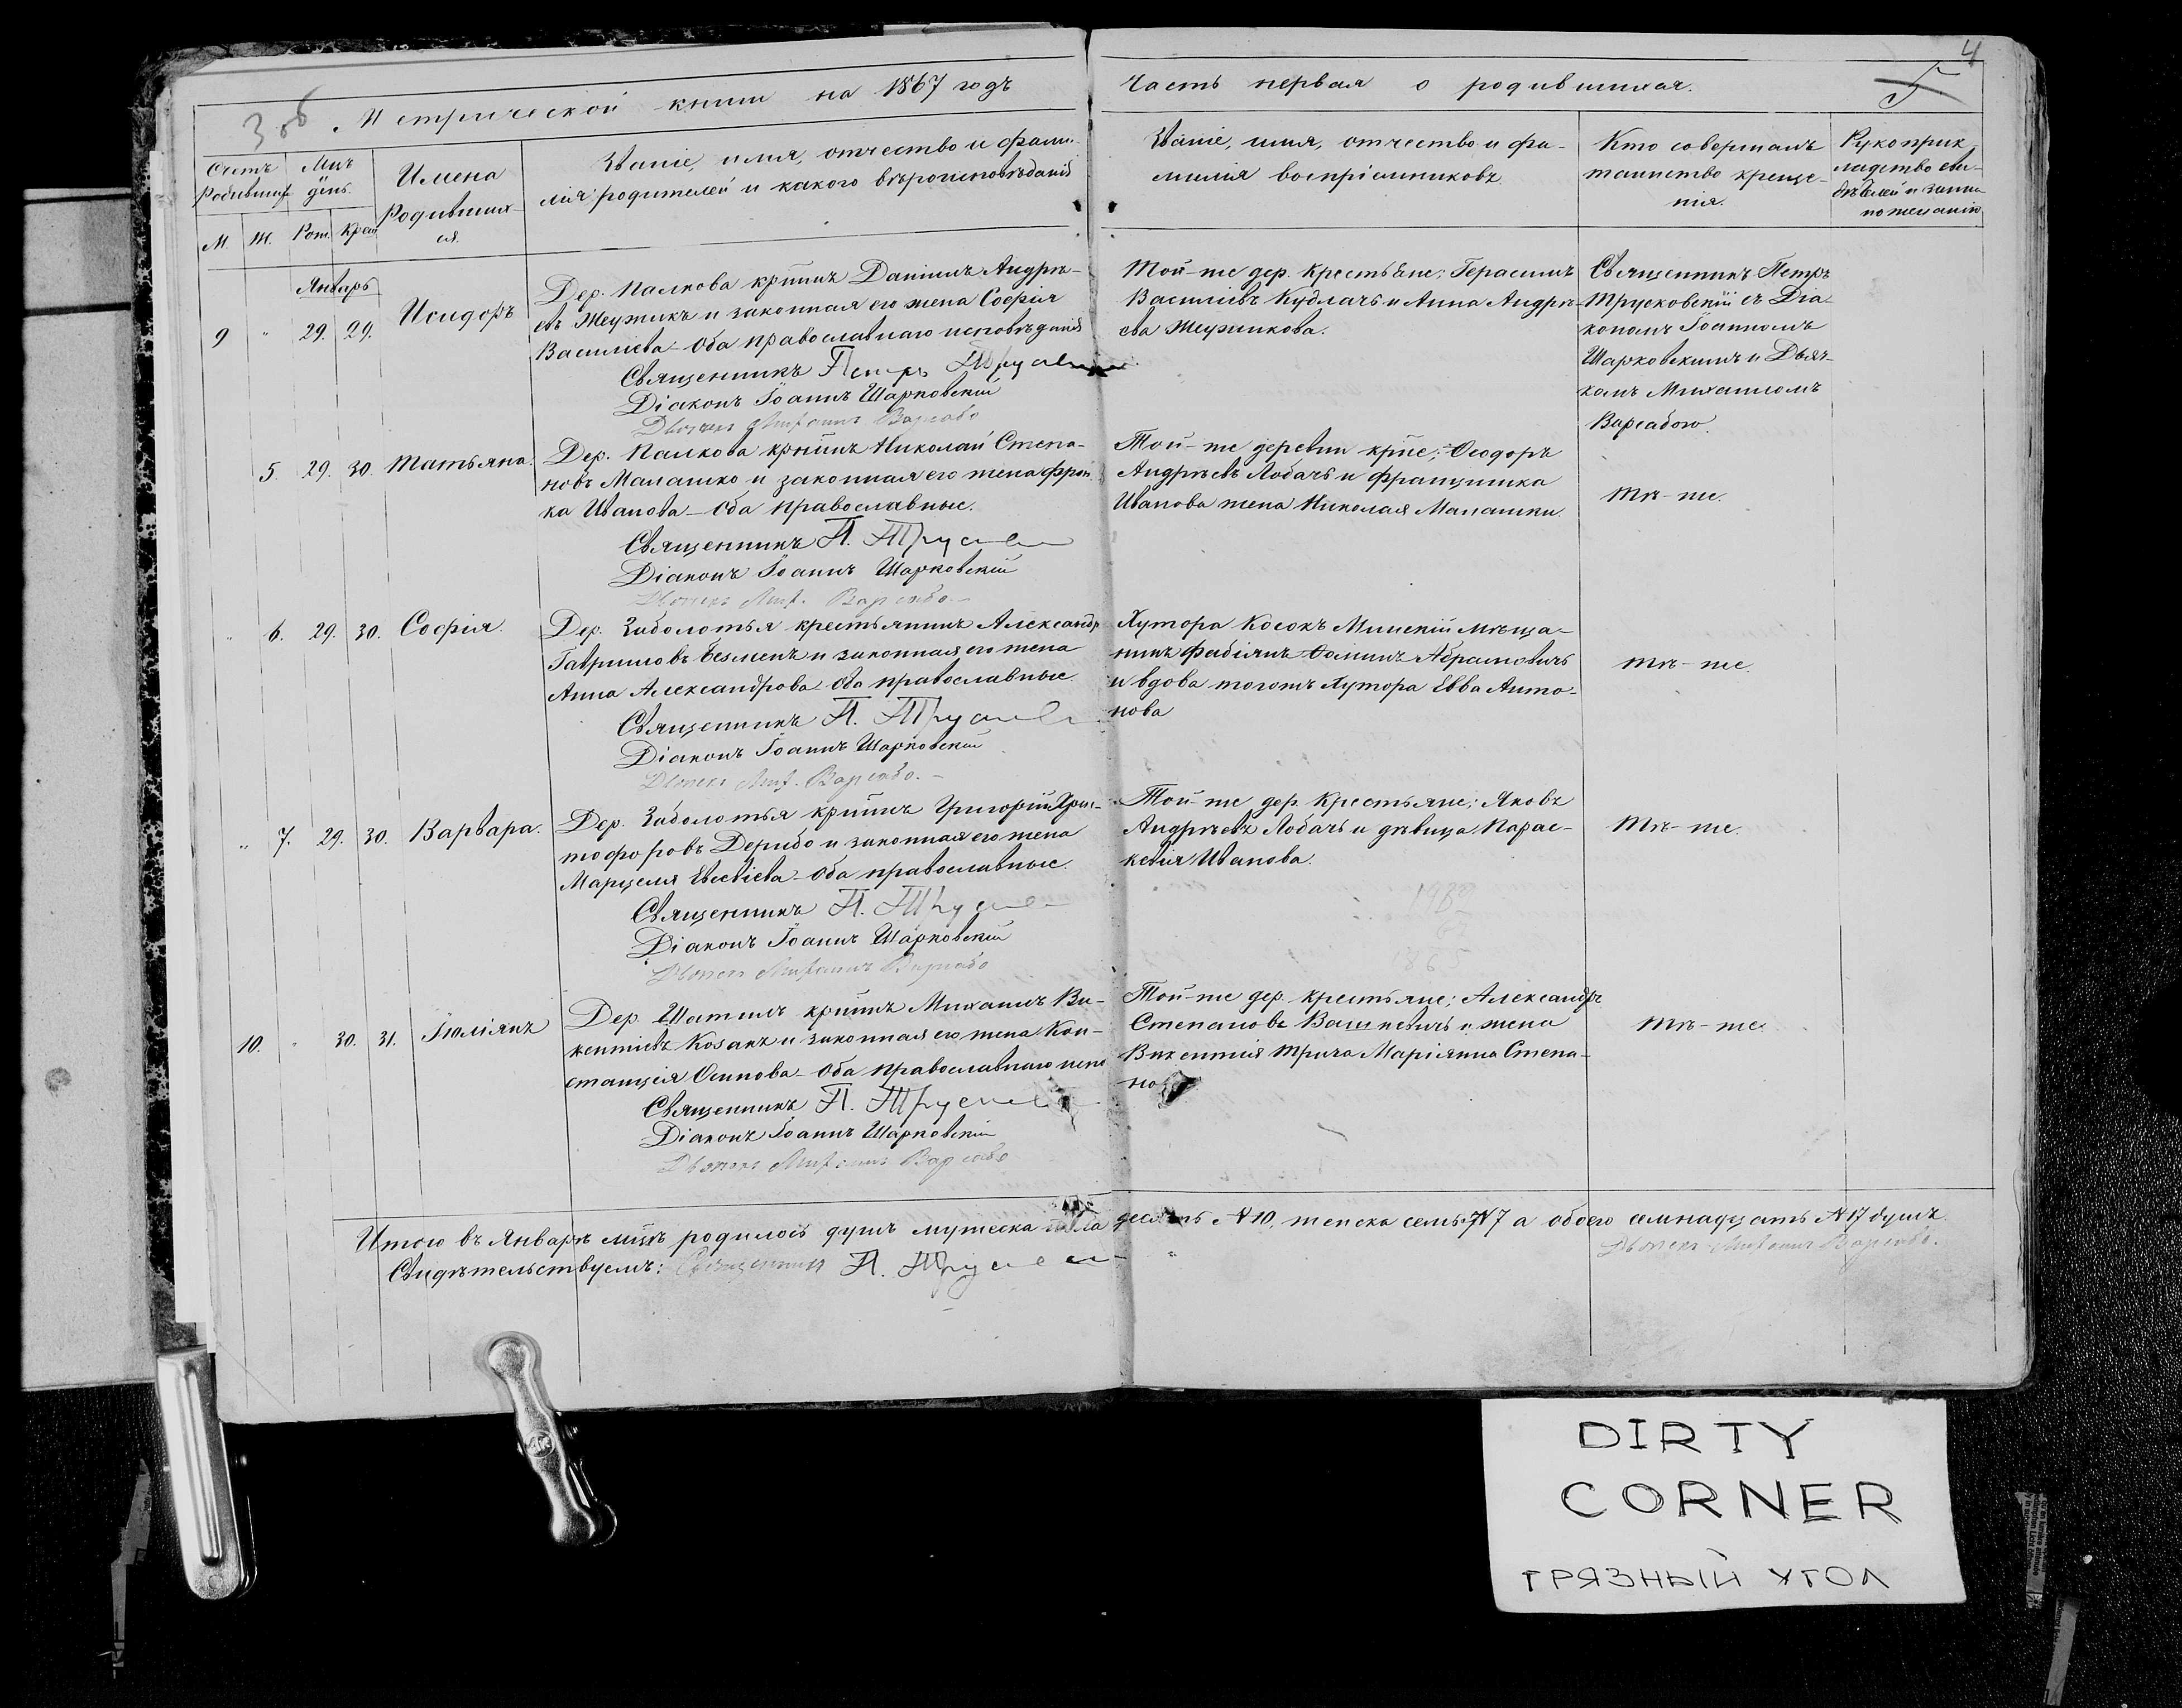 4
5
3 об
Метрической книги на 1867 годъ
Часть первая о родившихся.
Счетъ
Родившихс
Мцъ
день.
Имена
Родивших-
ся.
М.
Ж.
Рож.
Крещ
Званіе, имя, отчество и фами-
лія родителей и какого вѣроисповѣданія
Званіе, имя, отчество и фа-
милія воспріемниковъ
Кто совершалъ
таинство креще-
нія.
Рукоприк
ладство сви-
дѣтелей о запи
по желанію
Январь
9 " 29. 29.
Исидоръ
Дер. Палкова крстинъ Даніилъ Андрѣ-
евъ Жеужикъ и законная его жена Софія
Василіева Оба православнаго исповѣданія
Священникъ Петръ
Діаконъ Іоаннъ Шарковскій
Дьячекъ Михаилъ Варсабо
Той-же дер. крестьяне: Герасимъ
Василіевъ Кудлачъ и Анна Андрѣ-
ева Жеужикова.
Священникъ Петръ
Трусковскій съ Діа-
кономъ Іоанномъ
Шарковскимъ и Дьяч-
комъ Михаиломъ
Варсабою.
5. 29. 30. Татьяна.
Дер. Палкова крстинъ Николай Степа-
новъ Малашко и законная его жена Фран
ка Иванова Оба православные.
Священникъ П.
Діаконъ Іоаннъ Шарковскій
Дьячекъ Мих. Варсабо
Той-же деревни крне: Ѳеодоръ
Андрѣевъ Лобачъ и Францишка
Иванова жена Николая Малашки.
Тѣ-же.
" 6. 29. 30. Софія.
Дер. Заболотья крестьянинъ Александр
Гавриловъ Безменъ и законная его жена
Анна Александрова Оба православные
Священникъ П.
Діаконъ Іоаннъ Шарковскій
Дьячекъ Мих. Варсабо.
Хутора Косокъ Минскій мѣща-
нинъ Фабіянъ Ѳоминъ Абрамовичъ
и вдова тогожъ Хутора Евва Анто-
нова
Тѣ-же.
" 7. 29. 30. Варвара.
Дер. Заболотья крстинъ Григорій Хрис-
тофоровъ Дерибо и законная его жена
Марцеля Евсевіева Оба православные.
Священникъ П.
Діаконъ Іоаннъ Шарковскій
Дьячекъ Михаилъ Варсабо
Той-же дер. Крестьяне: Яковъ
Андрѣевъ Лобачъ и дѣвица Парас-
кевія Иванова.
Тѣ-же.
1865
10. " 30. 31. Іюліянъ
Дер. Шатилъ крстинъ Михаилъ Ви-
кентіевъ Козакъ и законная его жена Кон-
станція Осипова Оба православнаго испо
Священникъ П.
Діаконъ Іоаннъ Шарковскій
Дьячекъ Михаилъ Варсабо
Той-же дер. крестьяне: Александръ
Степановъ Вашкевичъ и жена
Викентія Трича Маріянна Степа-
но
Тѣ-же.
Итого въ Январѣ мцѣ родилось душъ мужеска пола десять № 10, женска семь № 7 а обоего семнадцать № 17 душъ.
Свидѣтельствуемъ: Священникъ П.
Дьячекъ Михаилъ Варсабо.
DIRTY
CORNER
ГРЯЗНЫЙ УГОЛ